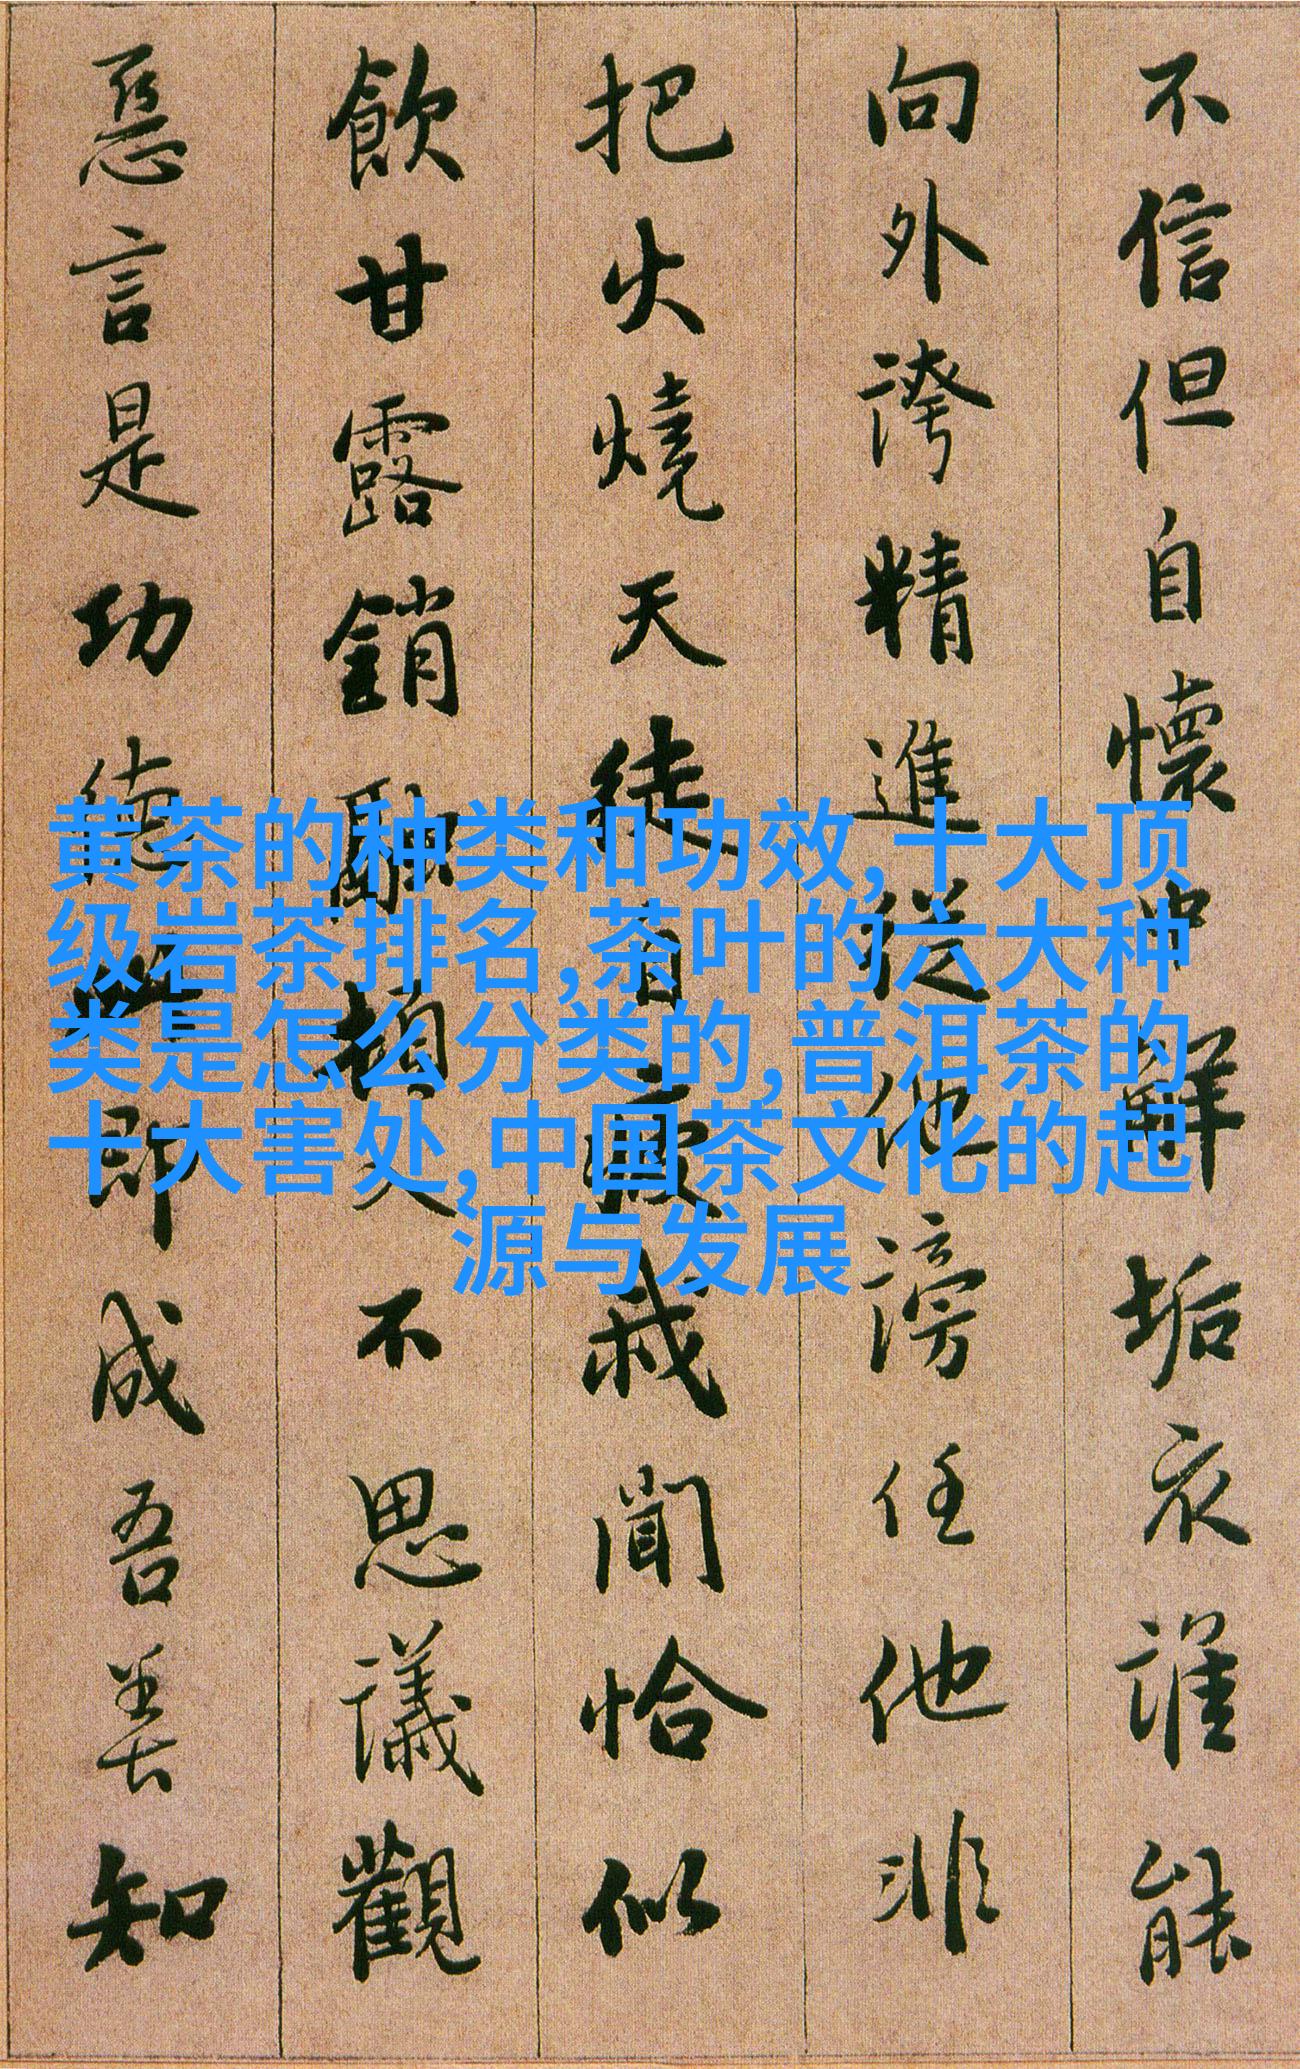 不信但自懷中解垢衣誰能
向外誇精進從他謗任他非
把火燒天徒自疲我聞恰似
飲甘露銷融頓入不思議觀
惡言是功德此即成吾善知
黄茶的种类和功效,十大顶
级岩茶排名,茶叶的六大种
类是怎么分类的,普洱茶的
十大害处,中国茶文化的起
源与发展